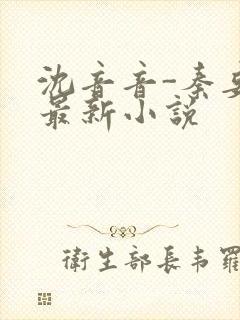 沈音音-秦
最新小说
衛生部長韦羅